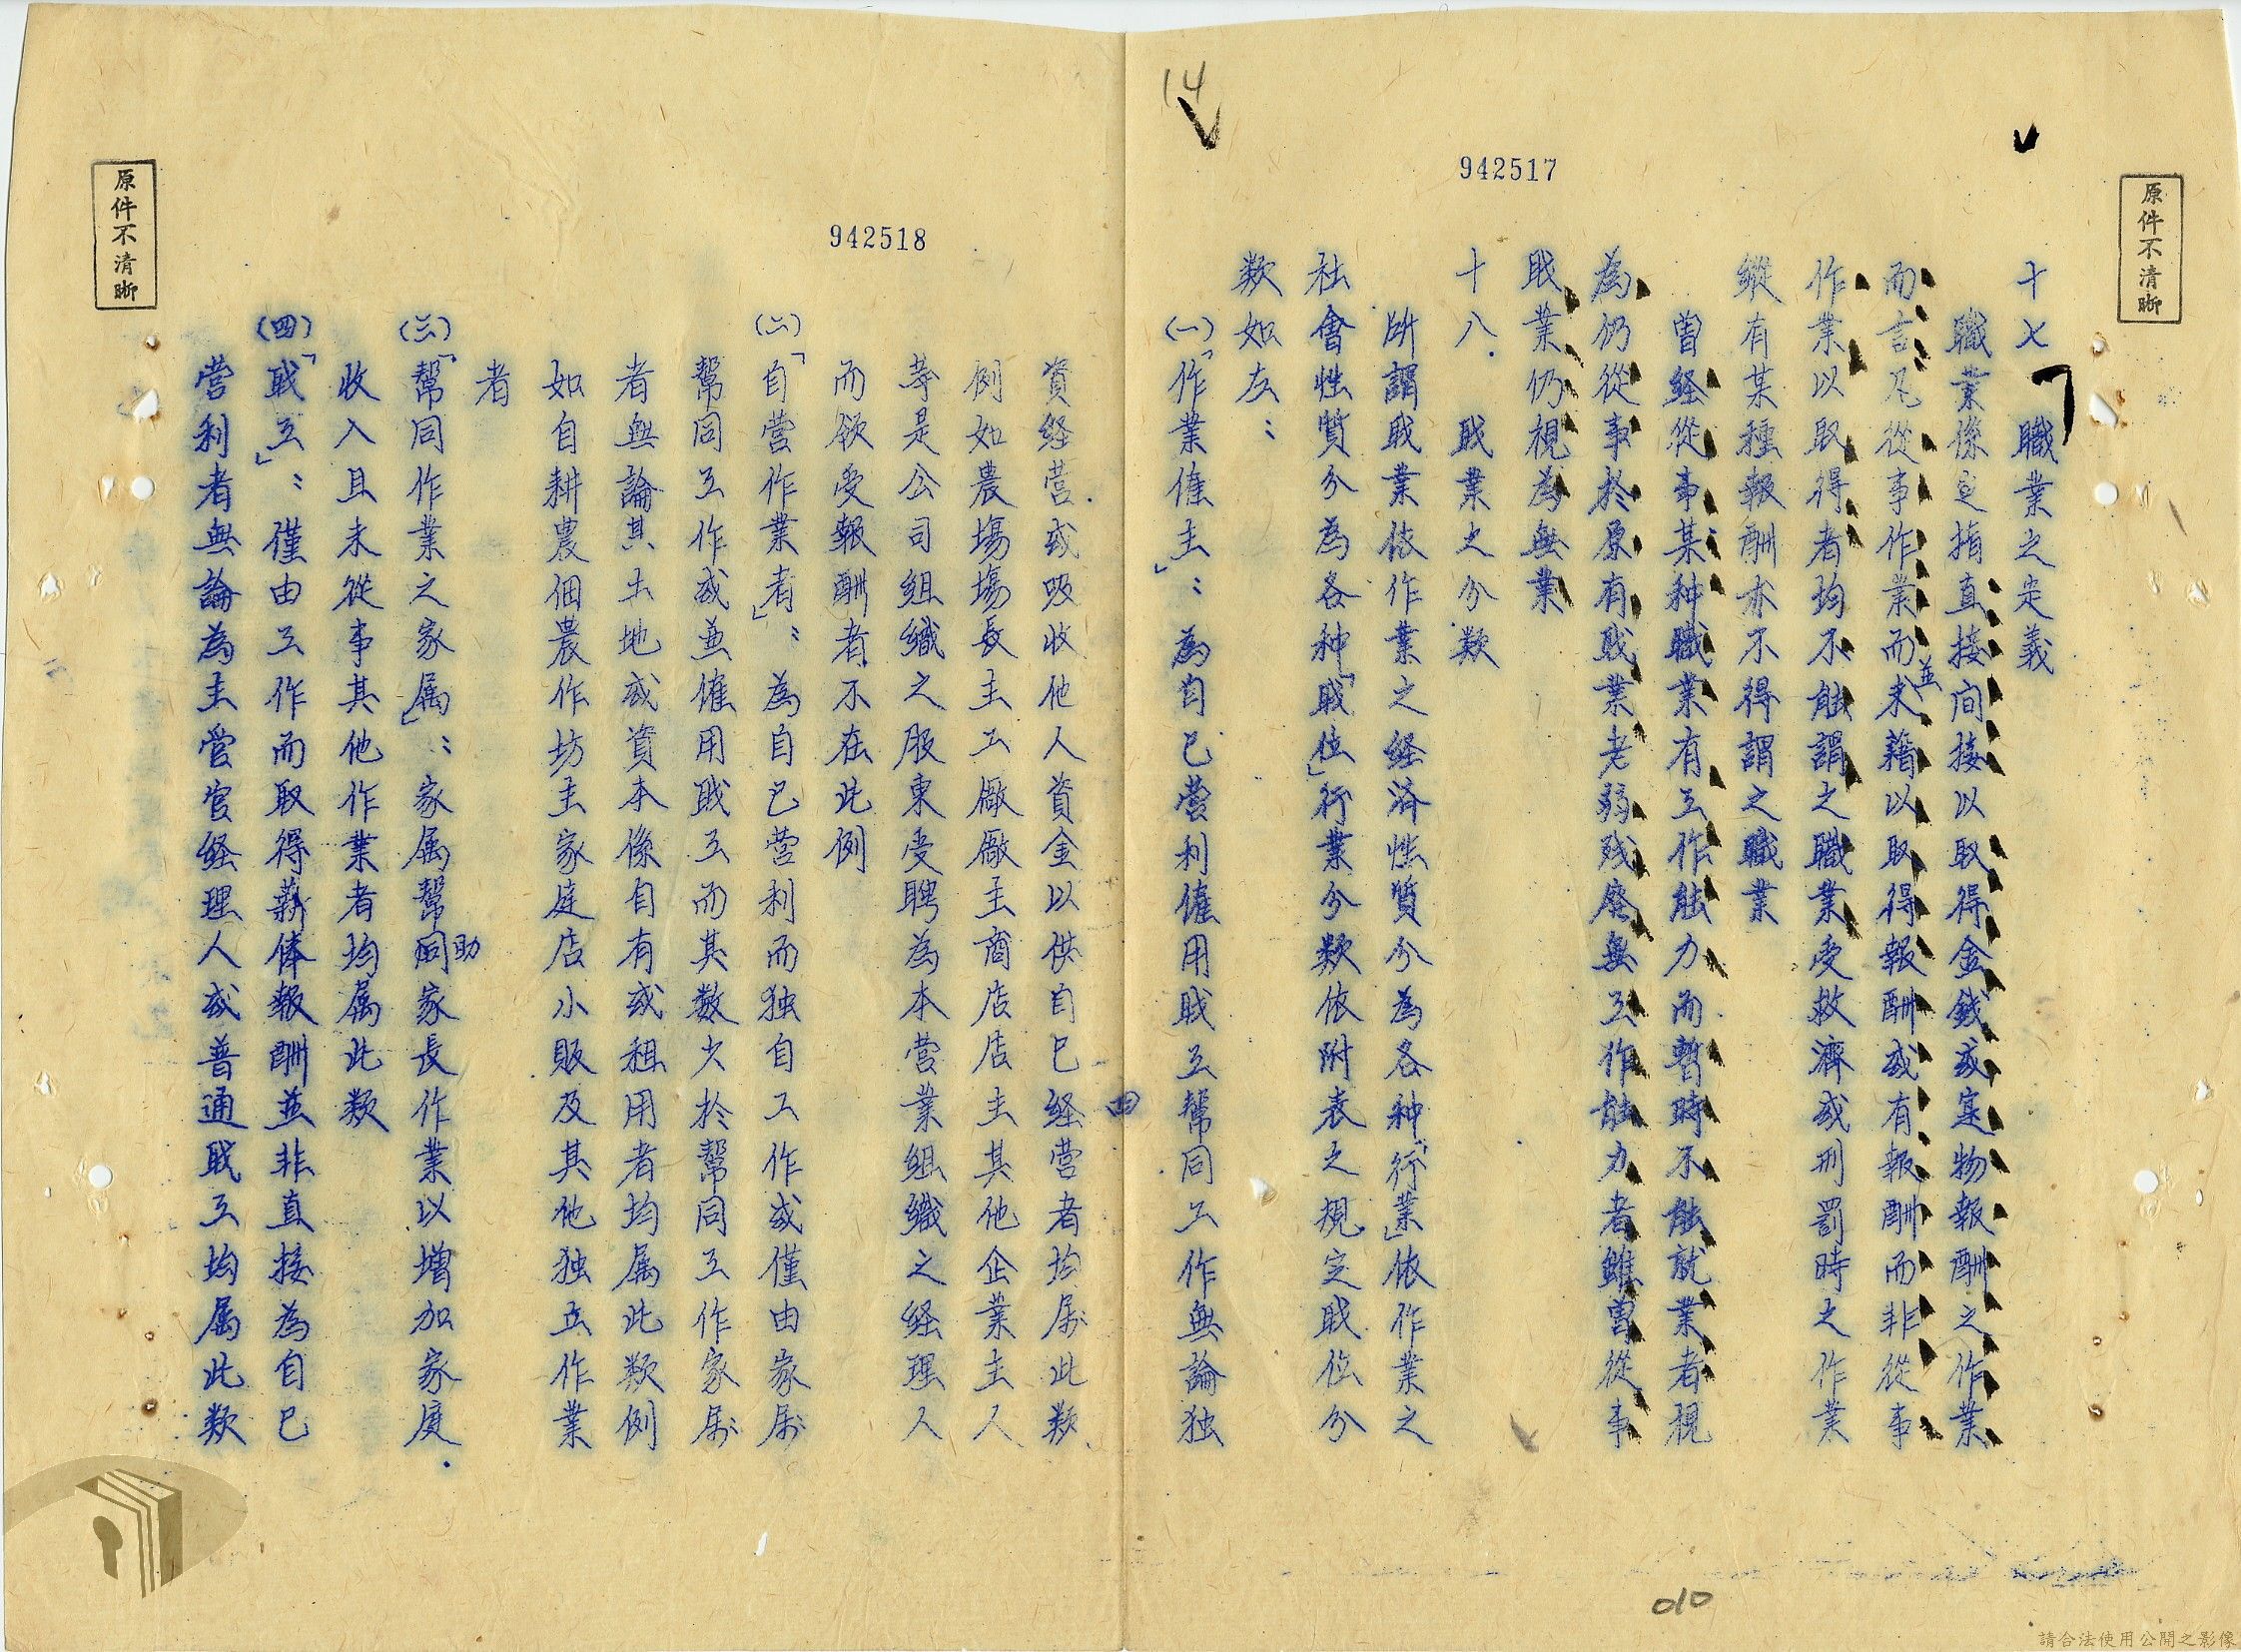 14
942517
原件不清晰
十七 職業之定義
職業係定指直接间接以取得金錢或寔物報酬之作業
而言凡從事作業而並未藉以取得報酬或有報酬而非從事
作業以取得者均不能謂之職業受救濟或刑罰時之作業
縱有某種報酬亦不得謂之職業
曾経從事某种職業有工作能力而暫時不能就業者視
為仍從事於原有戝業老弱残廢無工作能力者雖曾從事
戝業仍視為無業
十八. 戝業之分類
所謂戝業依作業之経済性質分為各种「行業」依作業之
社會性質分為各种「戝位」行業分類依附表之規定戝位分
類如左：
(一)「作業僱主」：為自己营利僱用戝工幫同工作無論独
四
010
942518
資経营或吸收他人資金以供自己経营者均属此類
例如農場場長主工廠廠主商店店主其他企業主人
等是公司組織之股東受聘為本营業組織之経理人
而欲受報酬者不在此例
(二)「自营作業者」：為自己营利而独自工作或僅由家属
幫同工作或兼僱用戝工而其数少於幫同工作家属
者無論其土地或資本係自有或租用者均属此類例
如自耕農佃農作坊主家庭店小販及其他独立作業
者
(三)「幫同作業之家属」：家属幫助家長作業以增加家庭
收入且未從事其他作業者均属此類
(四)「戝工」：僅由工作而取得薪俸報酬並非直接為自己
营利者無論為主管官経理人或普通戝工均属此類
原件不清晰
請合法使用公開之影像